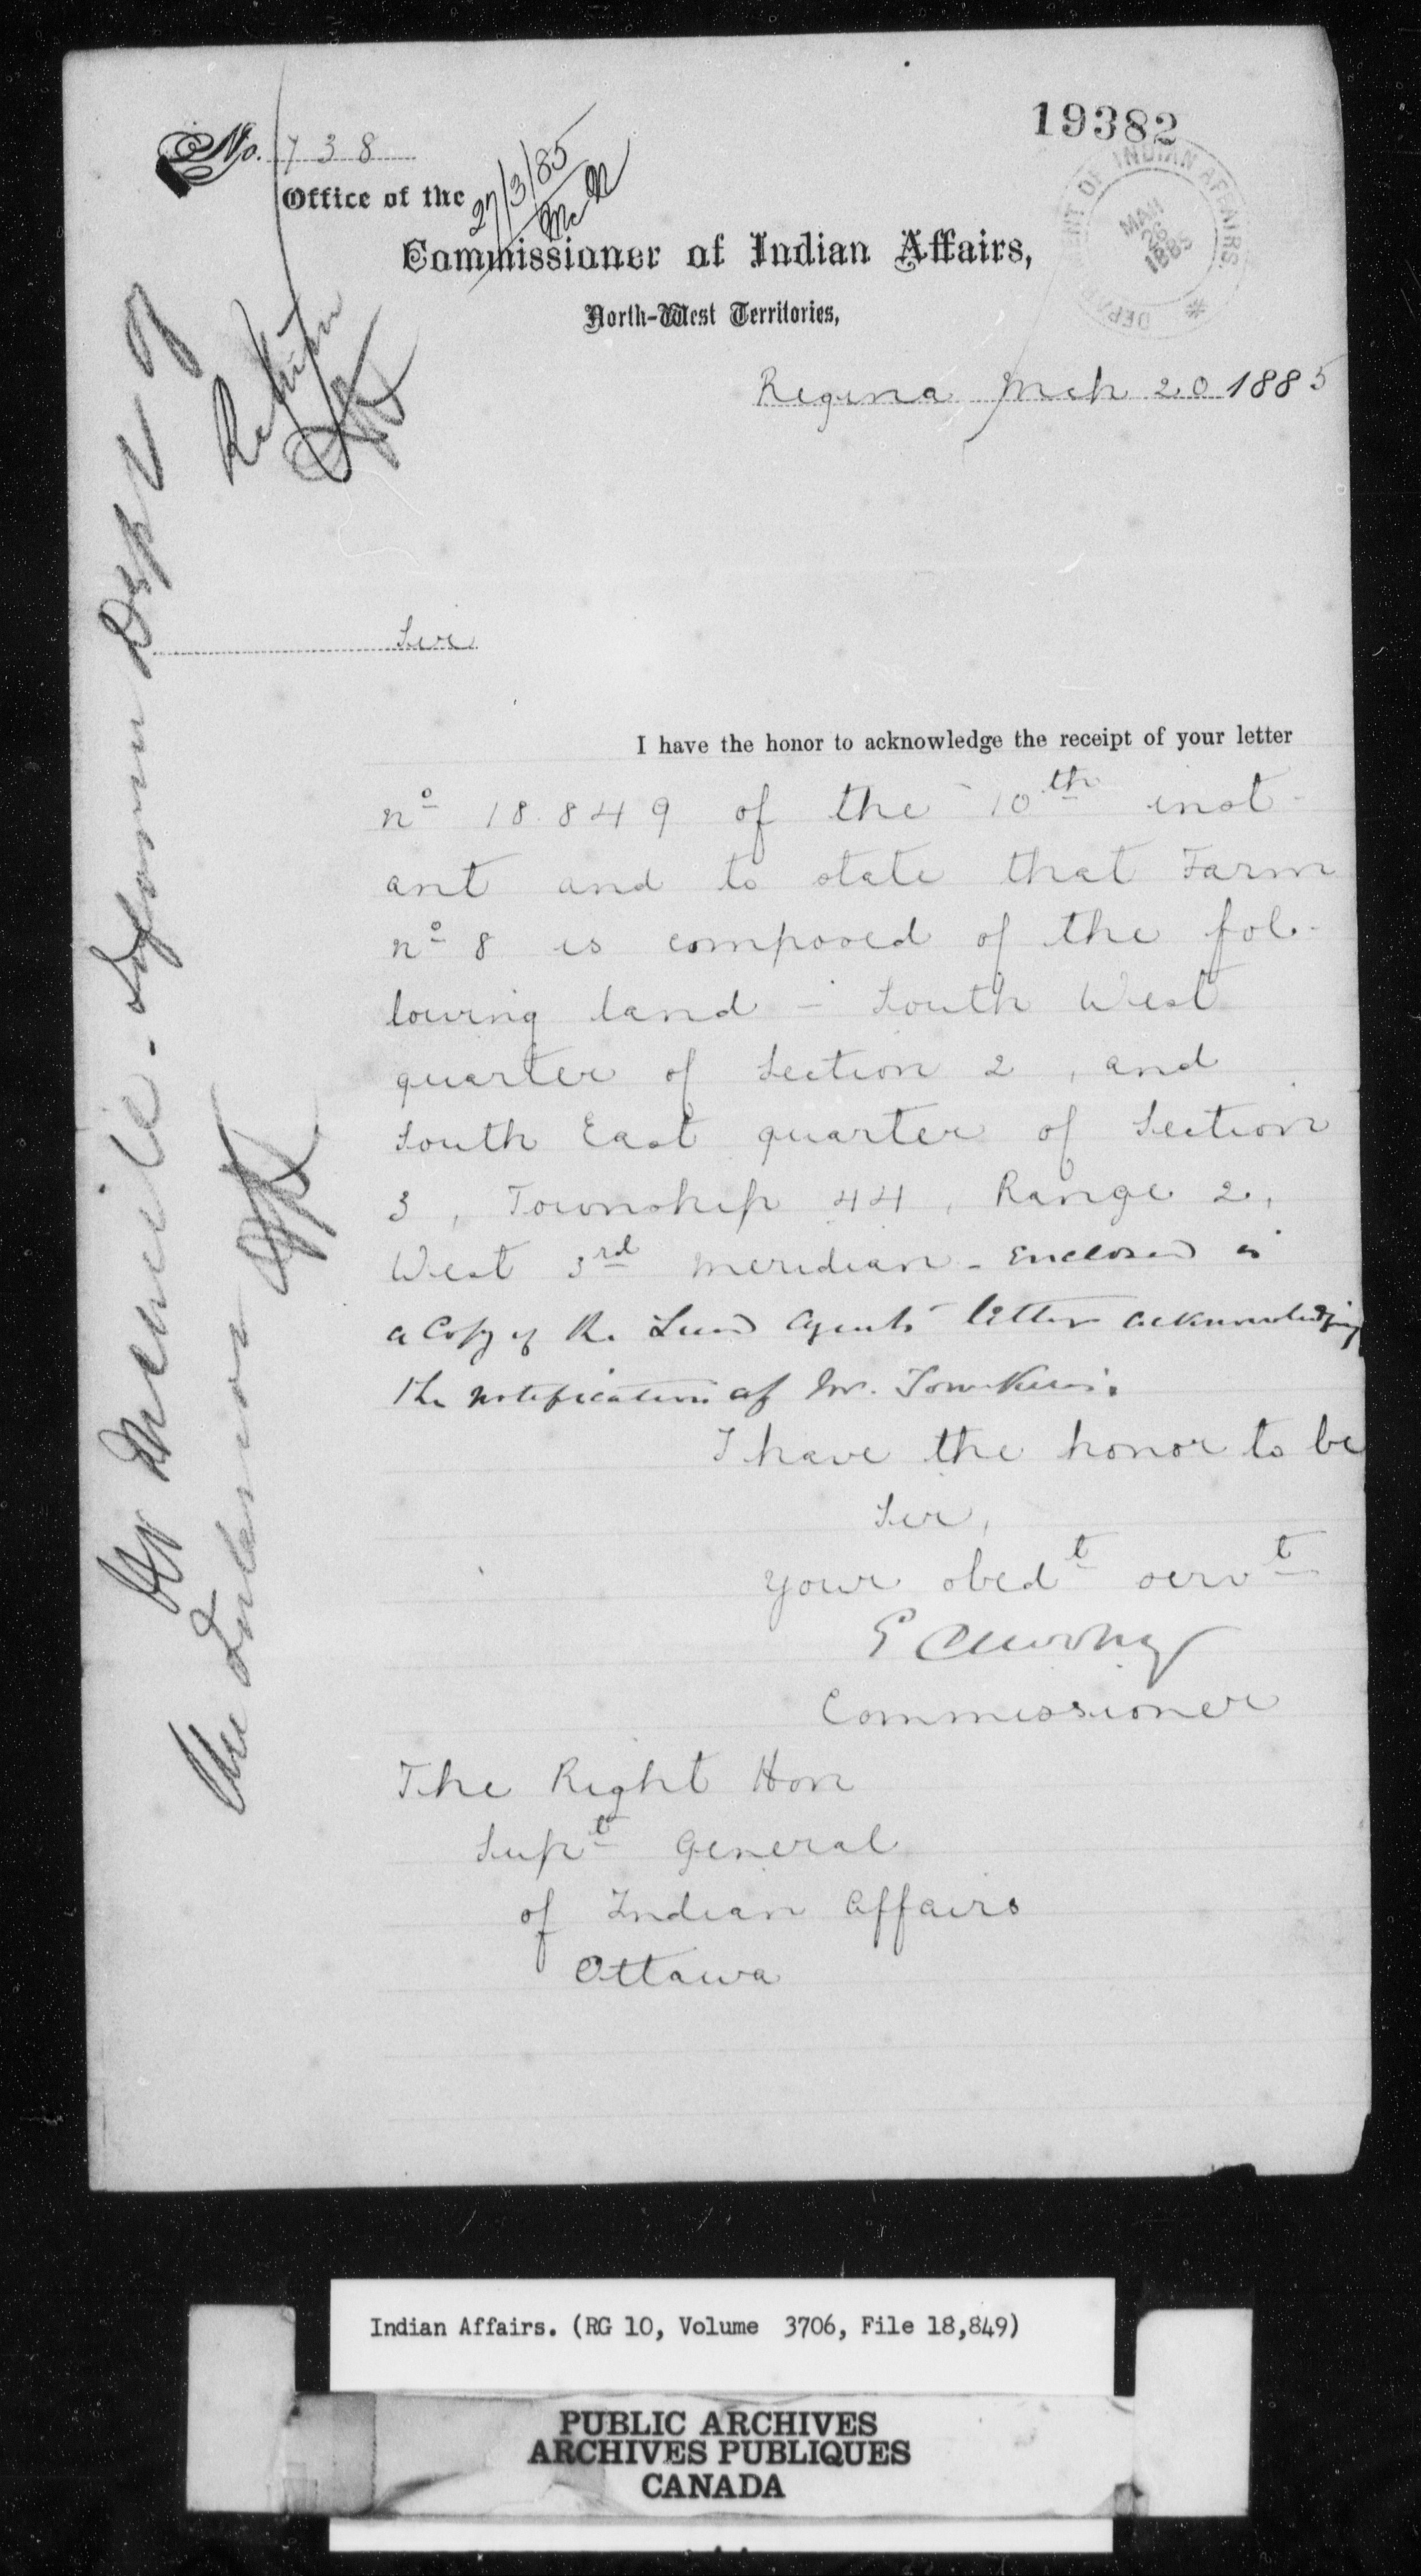 19382
No. 738
27/3/85
McN
Office of the
Commissioner of Indian Affairs,
North-West Territories,
DEPARTMENT OF INDIAN AFFAIRS.
MAR
1885
Regina Mch 20 1885
Return
Sir
I have the honor to acknowledge the receipt of your letter
nº 18.849 of the 10th inst-
ant and to state that Farm
nº 8 is composed of the fol-
lowing land - South West
quarter of Section 2, and
South East quarter of Section
3, Township 44, Range 2,
West 3rd meridian - Enclosed is
a Copy of the Land Agents letter acknowledging
the notification of Mr. Tompkins.
I have the honor to be
Sir,
your obedt servt
E Dewdney
Commissioner
The Right Hon
Supt General
of Indian Affairs
Ottawa
Mr McNeill - Inform Dept of
the Interior
Indian Affairs. (RG 10, Volume 3706, File 18,849)
PUBLIC ARCHIVES
ARCHIVES PUBLIQUES
CANADA